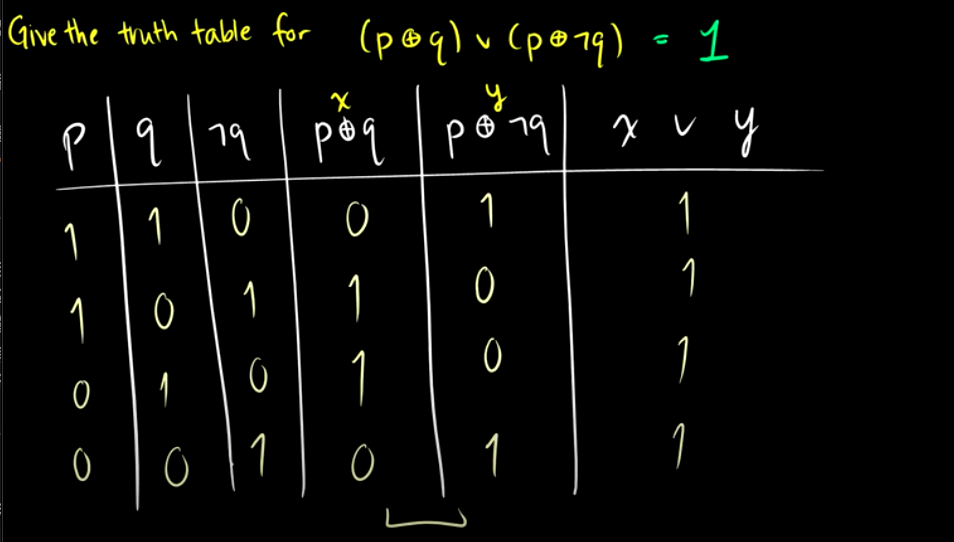 Give the truth table for (p ⊕ q) ∨ (p ⊕ ¬q) = 1
x y
p q ¬q p⊕q p ⊕ ¬q x ∨ y
1 1 0 0 1 1
1 0 1 1 0 1
0 1 0 1 0 1
0 0 1 0 1 1